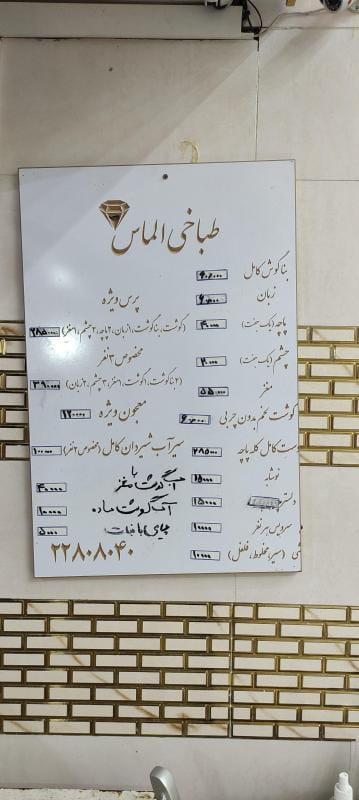 طباخی الماس
بناگوش کامل
زبان
پاچه (یک جفت)
چشم (یک جفت)
مغز ۵۵۰۰۰
گوشت بدون چربی
ست کامل کله پاچه ۲۸۵۰۰۰
نوشابه ۱۵۰۰۰
۱۵۰۰۰
سرویس هر نفر ۱۰۰۰۰
(سیر، مخلوط، فلفل) ۱۰۰۰۰
پرس ویژه
(گوشت، بناگوشت، ۱زبان، ۲پاچه، ۲چشم، ۱مغز) ۲۸۵۰۰۰
مخصوص ۳نفر
۳۹۰۰۰۰
معجون ویژه ۱۲۰۰۰۰
سیرآب شیردان کامل (مخصوص ۲نفر) ۱۰۰۰۰۰
آبگوشت با مغز ۴۰۰۰۰
آبگوشت ساده ۱۰۰۰۰
چای با نبات ۵۰۰۰
۲۲۸۰۸۰۴۰